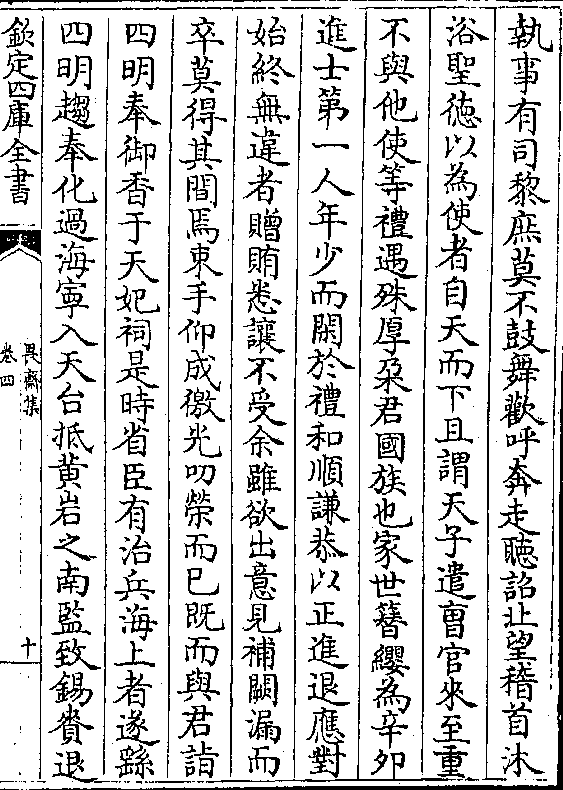 執事有司黎庶莫不鼓舞歡呼奔走聽詔北望稽首沐
浴聖徳以為使者自天而下且謂天子遣曺官來至重
不與他使等禮遇殊厚朶君國族也家世簪纓為辛夘
進士第一人年少而閑於禮和順謙恭以正進退應對
始終無違者贈賄悉讓不受余雖欲出意見補闕漏而
卒莫得其間焉束手仰成徼光叨榮而已既而與君詣
四明奉御香于天妃祠是時省臣有治兵海上者遂繇
四明趨奉化過海寧入天台抵黄岩之南監致錫賚退
欽定四庫全書
畏齋集
卷四
十